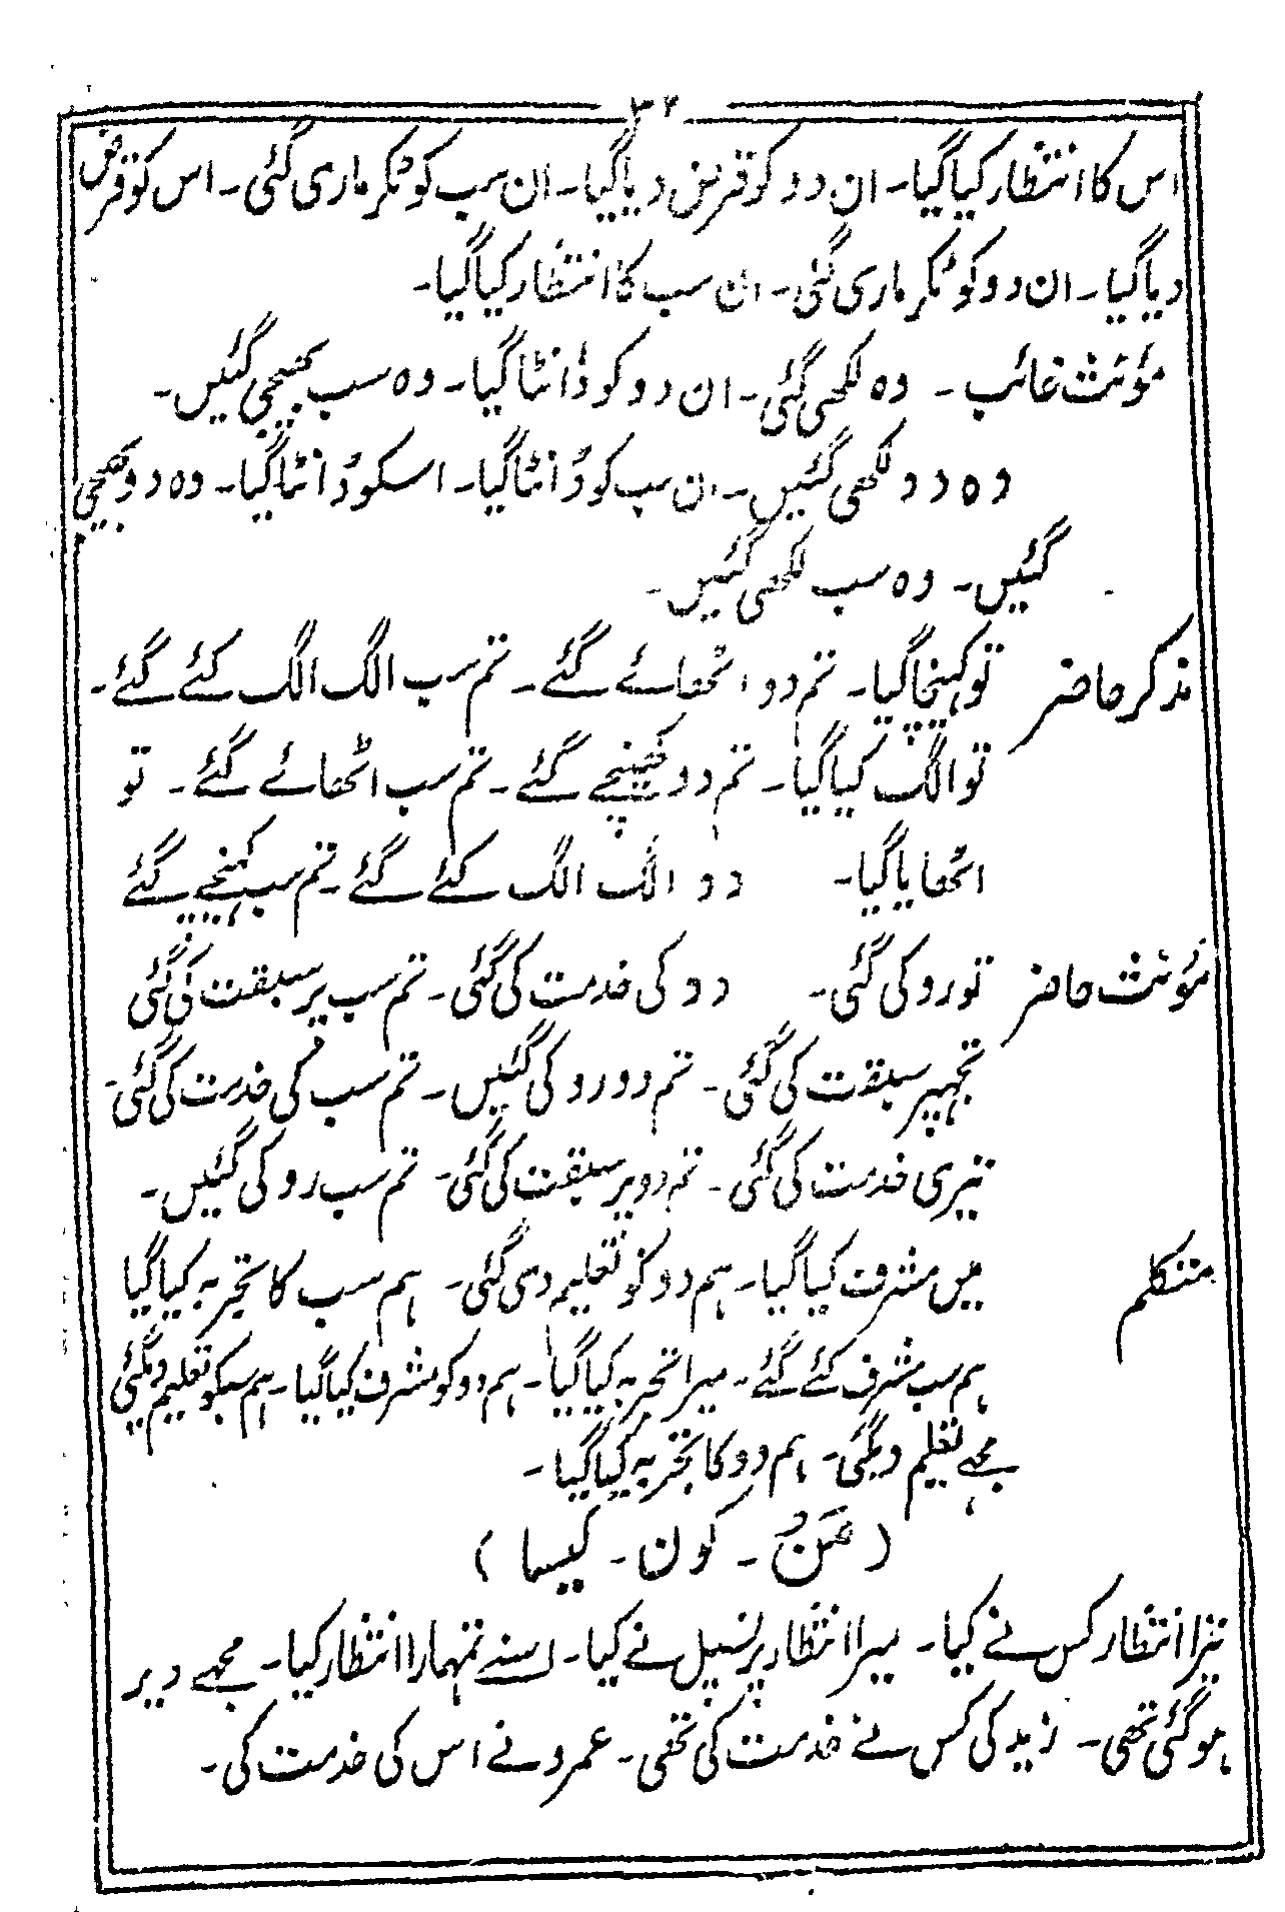 ۳۴
اس کا انتظار کیا گیا۔ ان دو کو قرض دیا گیا۔ ان سب کو ٹکر ماری گئی۔ اس کو قرض
دیا گیا۔ ان دو کو ٹکر ماری گئی۔ ان سب کا انتظار کیا گیا۔
مؤنث غائب۔ وہ لکھی گئی۔ ان دو کو ڈانٹا گیا۔ وہ سب بھیجی گئیں۔
وہ دو لکھی گئیں۔ ان سب کو ڈانٹا گیا۔ اسکو ڈانٹا گیا۔ وہ دو بھیجی
گئیں۔ وہ سب لکھی گئیں۔
مذکر حاضر تو کہینچا گیا۔ تم دو اٹھائے گئے۔ تم سب الگ الگ کئے گئے۔
تو الگ کیا گیا۔ تم دو کھینچے گئے۔ تم سب اٹھائے گئے۔ تو
اٹھایا گیا۔ دو الگ الگ کئے گئے۔ تم سب کہینچے گئے
مؤنث حاضر تو روکی گئی۔ دو کی خدمت کی گئی۔ تم سب پر سبقت کی گئی
تجہپر سبقت کی گئی۔ تم دو روکی گئیں۔ تم سب کی خدمت کی گئی۔
تیری خدمت کی گئی۔ تم دو پر سبقت کی گئی۔ تم سب روکی گئیں۔
متکلم میں مشرف کیا گیا۔ ہم دو کو تعلیم دی گئی۔ ہم سب کا تجربہ کیا گیا
ہم سب مشرف کئے گئے۔ میرا تجربہ کیا گیا۔ ہم دو کو مشرف کیا گیا۔ ہم سبکو تعلیم دیگئی
مجہے تعلیم دیگئی۔ ہم دو کا تجربہ کیا گیا۔
(مَنْ۔ کون۔ کیسا)
تیرا انتظار کس نے کیا۔ میرا انتظار پرنسپل نے کیا۔ اسنے تمہارا انتظار کیا۔ مجہے دیر
ہو گئی تھی۔ زید کی کس نے خدمت کی تھی۔ عمرو نے اس کی خدمت کی۔